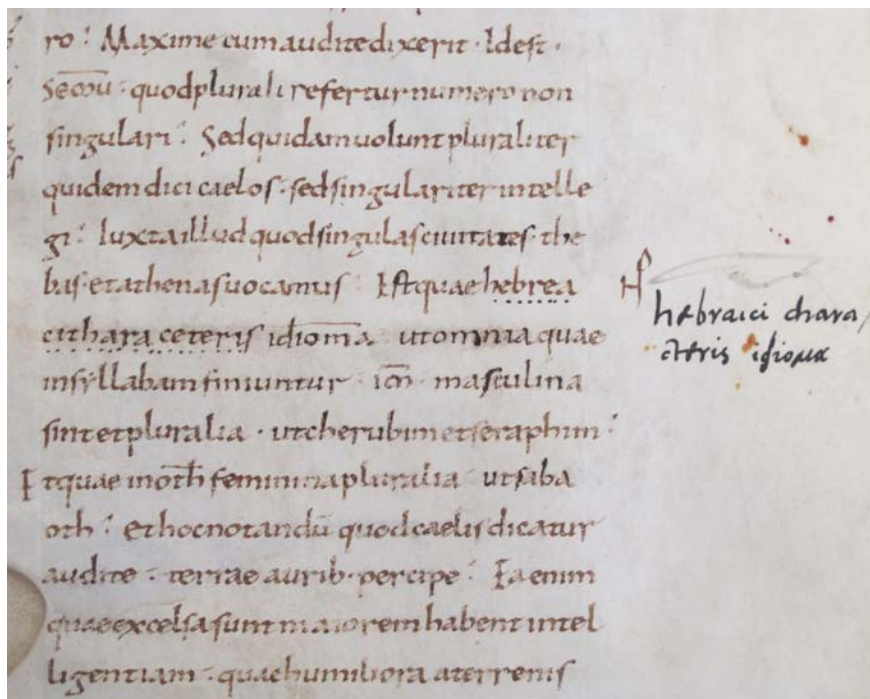 ro : Maxime cum audite dixerit · Idest ·
Semu : quod plurali refertur numero non
singulari : Sed quidam uolunt pluraliter
quidem dici caelos · sed singulariter intelle
gi : Iuxta illud quod singulas ciuitates · the
bas · et athenas uocamus : Estquae hebrea
cithara ceteris idioma ut omnia quae
in syllabam finiuntur · im · masculina
sint et pluralia · ut cherubim et seraphim :
Et quae in oth feminina pluralia ut saba
oth : et hoc notandū quod caelis dicatur
audite : terrae aurib · percipe : Ea enim
quae excelsa sunt maiorem habent intel
ligentiam : quae humiliora a terrenis
hebraici chara
cteris idioma